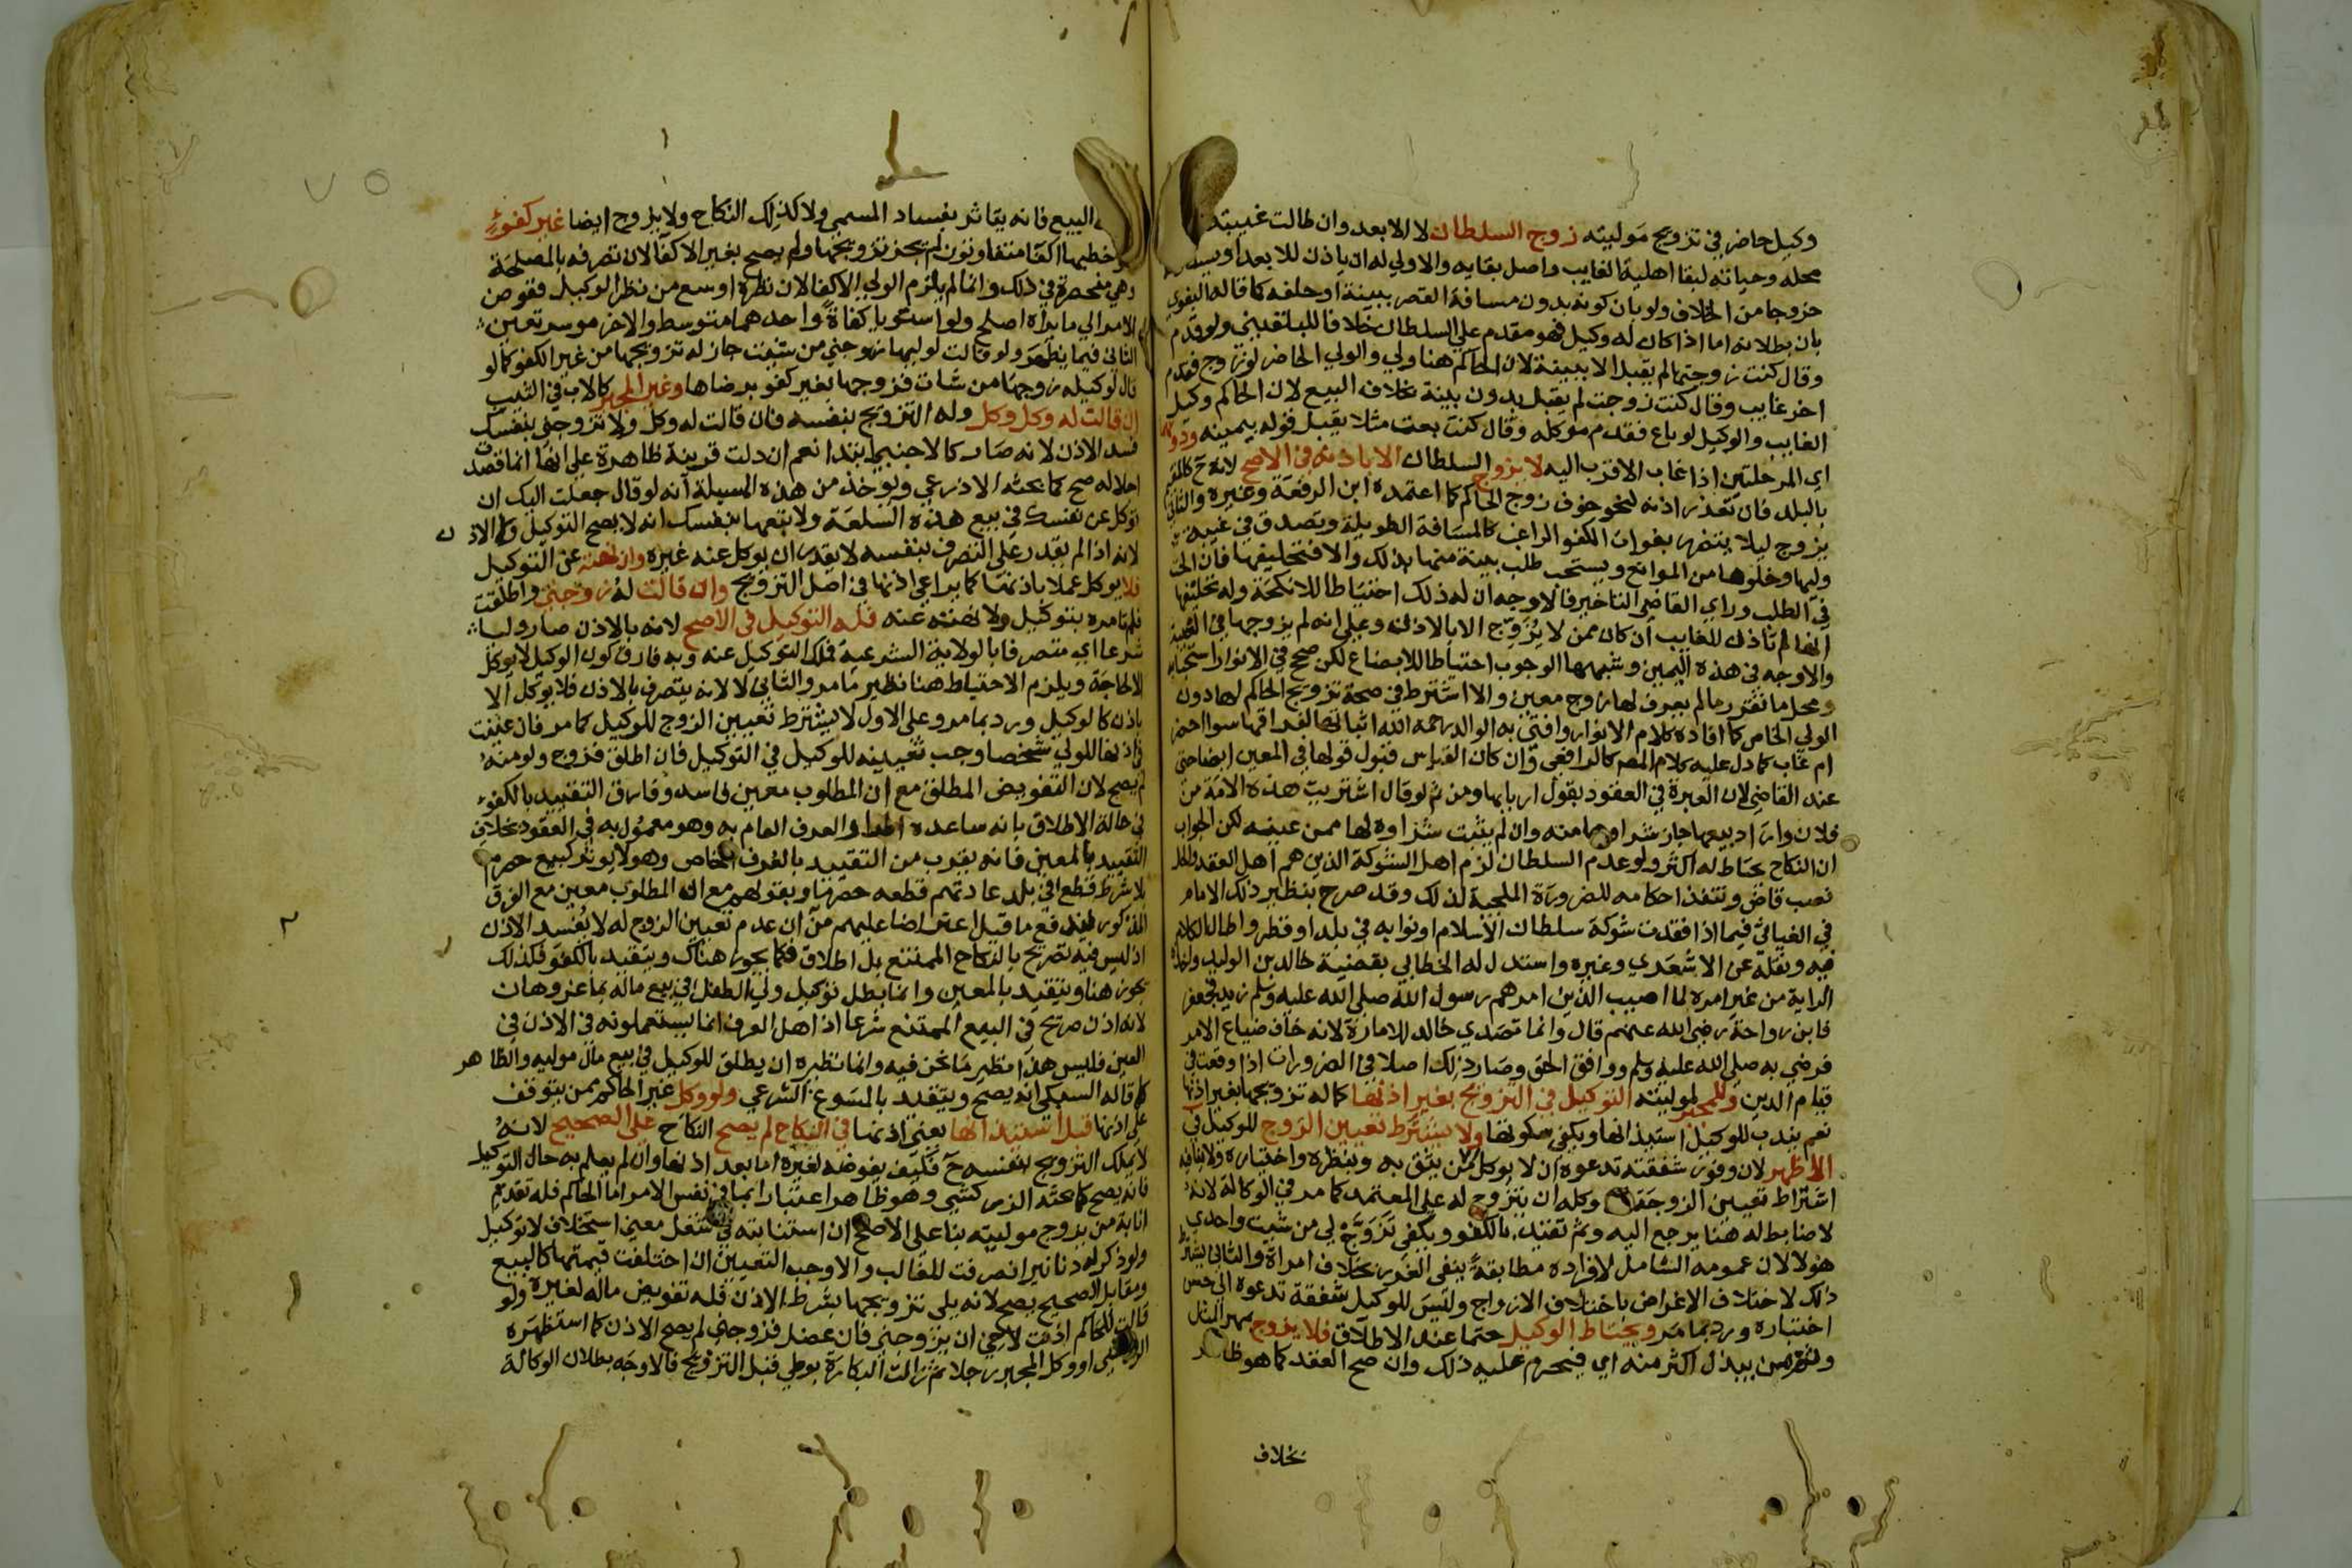 وكيل حاضر في تزويج موليته زوج السلطان لا الابعد وان طالت غيبته
محله وحياته لبقا اهلية الغايب واصل بقايه والاولي له ان ياذن للابعد او
خروجا من الخلاف ولو بان كونه بدون مسافة القصر ببينة او حلفه كما قاله البغوي
بان بطلانه اما اذا كان له وكيل فهو مقدم علي السلطان خلافا للبلقيني ولو قدم
وقال كنت زوجتها لم يقبل الا ببينة لان الحاكم هنا ولي والولي الحاضر لو زوج فقدم
اخر غايب وقال كنت زوجت لم يقبل بدون بينة بخلاف البيع لان الحاكم وكيل
الغايب والوكيل لو باع فقدم موكله وقال كنت بعت مثلا يقبل قوله بيمينه ودونهما
اي المرحلتين اذا غاب الاقرب اليه لا يزوج السلطان الا باذنه في الاصح لانه ح
بالبلد فان تعذر اذنه لنحو خوف زوج الحاكم كما اعتمده ابن الرفعة وغيره والثاني
يزوج ليلا يتضرر بفوات الكفو الراغب كالمسافة الطويلة وتصدق في غيبة
وليها وخلوها من الموانع ويستحب طلب بينة منها بذلك والا فتحليفها فان الحت
في الطلب وراي القاضي التاخير فالاوجه ان له ذلك احتياطا للانكحة وله تحليفها
انها لم تاذن للغايب ان كان ممن لا يزوج الا بالاذن وعلي انه لم يزوجها في الغيبة
والاوجه في هذه اليمين وشبهها الوجوب احتياطا للابضاع لكن صحح في الانوار استحبابه
ومحل ما تقرر ما لم يعرف لها زوج معين والا اشترط في صحة تزويج الحاكم لها دون
الولي الخاص كما افاده كلام الانوار وافتي به الوالد رحمه الله اثباتها لفراقها سوا احضر
ام غاب كما دل عليه كلام المصر كالرافعي وان كان القياس قبول قولها في المعين ايضا حتي
عند القاضي لان العبرة في العقود بقول اربابها ومن ثم لو قال اشتريت هذه الامة من
فلان واراد بيعها جاز شراوها منه وان لم يثبت شراوه لها ممن عينه لكن الجواب
ان النكاح يحتاط له اكثر ولو عدم السلطان لزم اهل الشوكة الذين هم اهل العقد والحل
نصب قاض وتنفذ احكامه للضرورة الملجية لذلك وقد صرح بنظير ذلك الامام
في الغياثي فيما اذا فقدت شوكة سلطان الاسلام او نوابه في بلد او قطر واطال الكلام
فيه ونقله عن الاشعري وغيره واستدل له الخطابي بقضية خالد بن الوليد
الراية من غير امره لما اصيب الذين امرهم رسول الله صلي الله عليه وسلم زيد فجعفر
فابن رواحة رضي الله عنهم قال وانما تصدي خالد للامارة لانه خاف ضياع الامر
فرضي به صلي الله عليه وسلم ووافق الحق وصار ذلك اصلا في الضرورات اذا وقعت في
قيام الدين وللمجبر لموليته التوكيل في التزويج بغير اذنها كما له تزويجها بغير اذنها
نعم يندب للوكيل استيذانها ويكفي سكوتها ولا يشترط تعيين الزوج للوكيل في
الاظهر لان وفور شفقته تدعوه ان لا يوكل من يثق به وبنظره واختياره ولا ينافيه
اشتراط تعيين الزوجة وكله ان يتزوج له علي المعتمد كما مر في الوكالة لانه
لا ضابط له هنا يرجع اليه وثم تقيد بالكفو ويكفي تزوج لي من شيت واحدي
هولا لان عمومه الشامل لافراده مطابقة ينفي الغرر بخلاف امراة والثاني يشترط
ذلك لاختلاف الاغراض باختلاف الازواج وليس للوكيل شفقة تدعوه الي حسن
اختباره ورد بما مر ويحتاط الوكيل حتما عند الاطلاق فلا يزوج بمهر المثل
وثم من يبذل اكثر منه اي فيحرم عليه ذلك وان صح العقد كما هو ظاهر
بخلاف
البيع فانه يتاثر بفساد المسمي ولا كذلك النكاح ولا يزوج ايضا غير كفوء
خطبها اكفا متفاوتون لم يجز تزويجها ولم يصح بغير الاكفا لان تصرفه بالمصلحة
وهي منحصرة في ذلك وانما لم يلزم الولي الاكفا لان نظره اوسع من نظر الوكيل ففوض
الامر الي ما يراه اصلح ولو استويا كفاة واحدهما متوسط والاخر موسر تعين
الثاني فيما يظهر ولو قالت لوليها زوجني من شيت جاز له تزويجها من غير الكفو كما لو
قال لوكيله زوجها من شات فزوجها بغير كفو برضاها وغير المجبر كالاب في الثيب
ان قالت له وكل وكل وله التزويج بنفسه فان قالت له وكل ولا تزوجني بنفسك
فسد الاذن لانه صار كالاجنبي ابتدا نعم ان دلت قرينة ظاهرة علي انها انما قصدت
اجلاله صح كما بحثه الاذرعي ويوخذ من هذه المسيلة انه لو قال جعلت اليك ان
توكل عن نفسك في بيع هذه السلعة ولا تبعها بنفسك انه لا يصح التوكيل ولا الاذن
لانه اذا لم يقدر علي التصرف بنفسه لا يقدر ان يوكل عنه غيره وان نهته عن التوكيل
فلا يوكل عملا باذنها كما يراعي اذنها في اصل التزويج وان قالت له زوجني واطلقت
فلم تامره بتوكيل ولا نهته عنه فله التوكيل في الاصح لانه بالاذن صار وليا
شرعا اي متصرفا بالولاية الشرعية فملك التوكيل عنه وبه فارق كون الوكيل لا يوكل
الا لحاجة ويلزم الاحتياط هنا نظير ما مر والثاني لا لانه يتصرف بالاذن فلا يوكل الا
باذن كالوكيل ورد بما مر وعلي الاول لا يشترط تعيين الزوج للوكيل كما مر فان عينت
في اذنها للولي شخصا وجب تعيينه للوكيل في التوكيل فان اطلق فزوج ولو منه
لم يصح لان التفويض المطلق مع ان المطلوب معين فاسد وفارق التقييد بالكفو
في حالة الاطلاق بانه ساعده العرف العام به وهو معمول به في العقود بخلاف
التقييد بالمعين فانه يقرب من التقييد بالعرف الخاص وهو لا يوثر كبيع حصرم
بلا شرط قطع في بلد عادتهم قطعه حصرما وبقولهم مع ان المطلوب معين مع الفرق
المذكور يندفع ما قيل اعتراضا عليهم من ان عدم تعيين الزوج له لا يفسد الاذن
اذ ليس فيه تصريح بالنكاح الممتنع بل اطلاق فكما يجوز هناك ويتقيد بالكفو فكذلك
يجوز هنا ويتقيد بالمعين وانما بطل توكيل ولي الطفل في بيع ماله بما عز وهان
لانه اذن صريح في البيع الممتنع شرعا اذ اهل العرف انما يستعملونه في الاذن في
الغبن فليس هذا نظير ما نحن فيه وانما نظيره ان يطلق للوكيل في بيع مال موليه والظاهر
كما قاله السبكي انه يصح ويتقيد بالمسوغ الشرعي ولو وكل غير الحاكم ممن يتوقف
علي اذنها قبل استيذانها يعني اذنها في النكاح لم يصح النكاح علي الصحيح لانه
لا يملك التزويج بنفسه ح فكيف يفوضه لغيره اما بعد اذنها وان لم يعلم به حال التوكيل
فانه يصح كما بحثه الزركشي وهو ظاهر اعتبارا بما في نفس الامر اما الحاكم فله تقديم
انابة من يزوج موليته بنا علي الاصح ان استنابته في شغل معين استخلاف لا توكيل
ولو ذكر له دنانير انصرفت للغالب والاوجب التعيين ان اختلفت قيمتها كالبيع
ومقابل الصحيح يصح لانه يلي تزويجها بشرط الاذن فله تفويض ماله لغيره ولو
قالت للحاكم اذنت لاخي ان يزوجني فان عضل فزوجني لم يصح الاذن كما استظهره
او وكل المجبر رجلا ثم زالت البكارة بوطي قبل التزويج فالاوجه بطلان الوكالة